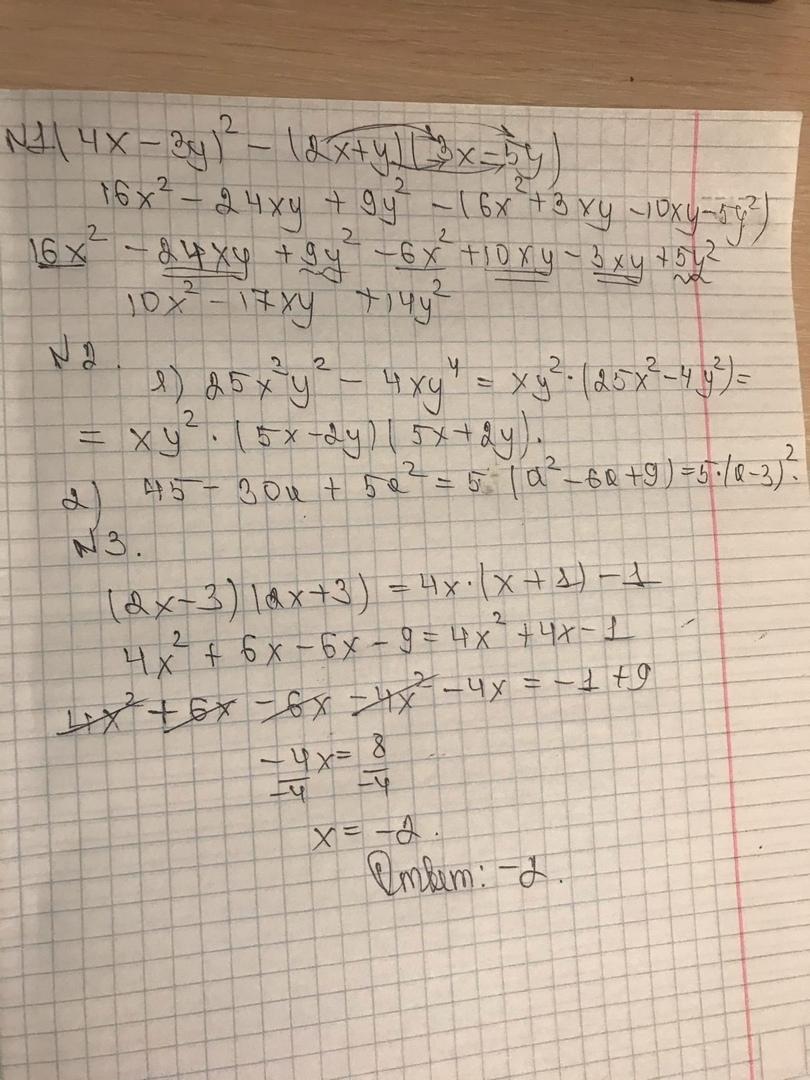 N1 (4x-3y)² - (2x+y)(3x-5y)
16x² - 24xy + 9y² - (6x²+3xy-10xy-5y²)
16x² - 24xy + 9y² - 6x² + 10xy - 3xy + 5y²
10x² - 17xy + 14y²
N2.
1) 25x²y² - 4xy⁴ = xy²·(25x²-4y²)=
= xy²·(5x-2y)(5x+2y).
2) 45 - 30a + 5a² = 5 (a²-6a+9)=5·(a-3)².
N3.
(2x-3)(2x+3) = 4x·(x+1)-1
4x² + 6x - 6x - 9 = 4x² + 4x - 1
4x² + 6x - 6x - 4x² - 4x = -1 + 9
-4x = 8
-4 -4
x = -2.
Ответ: -2.